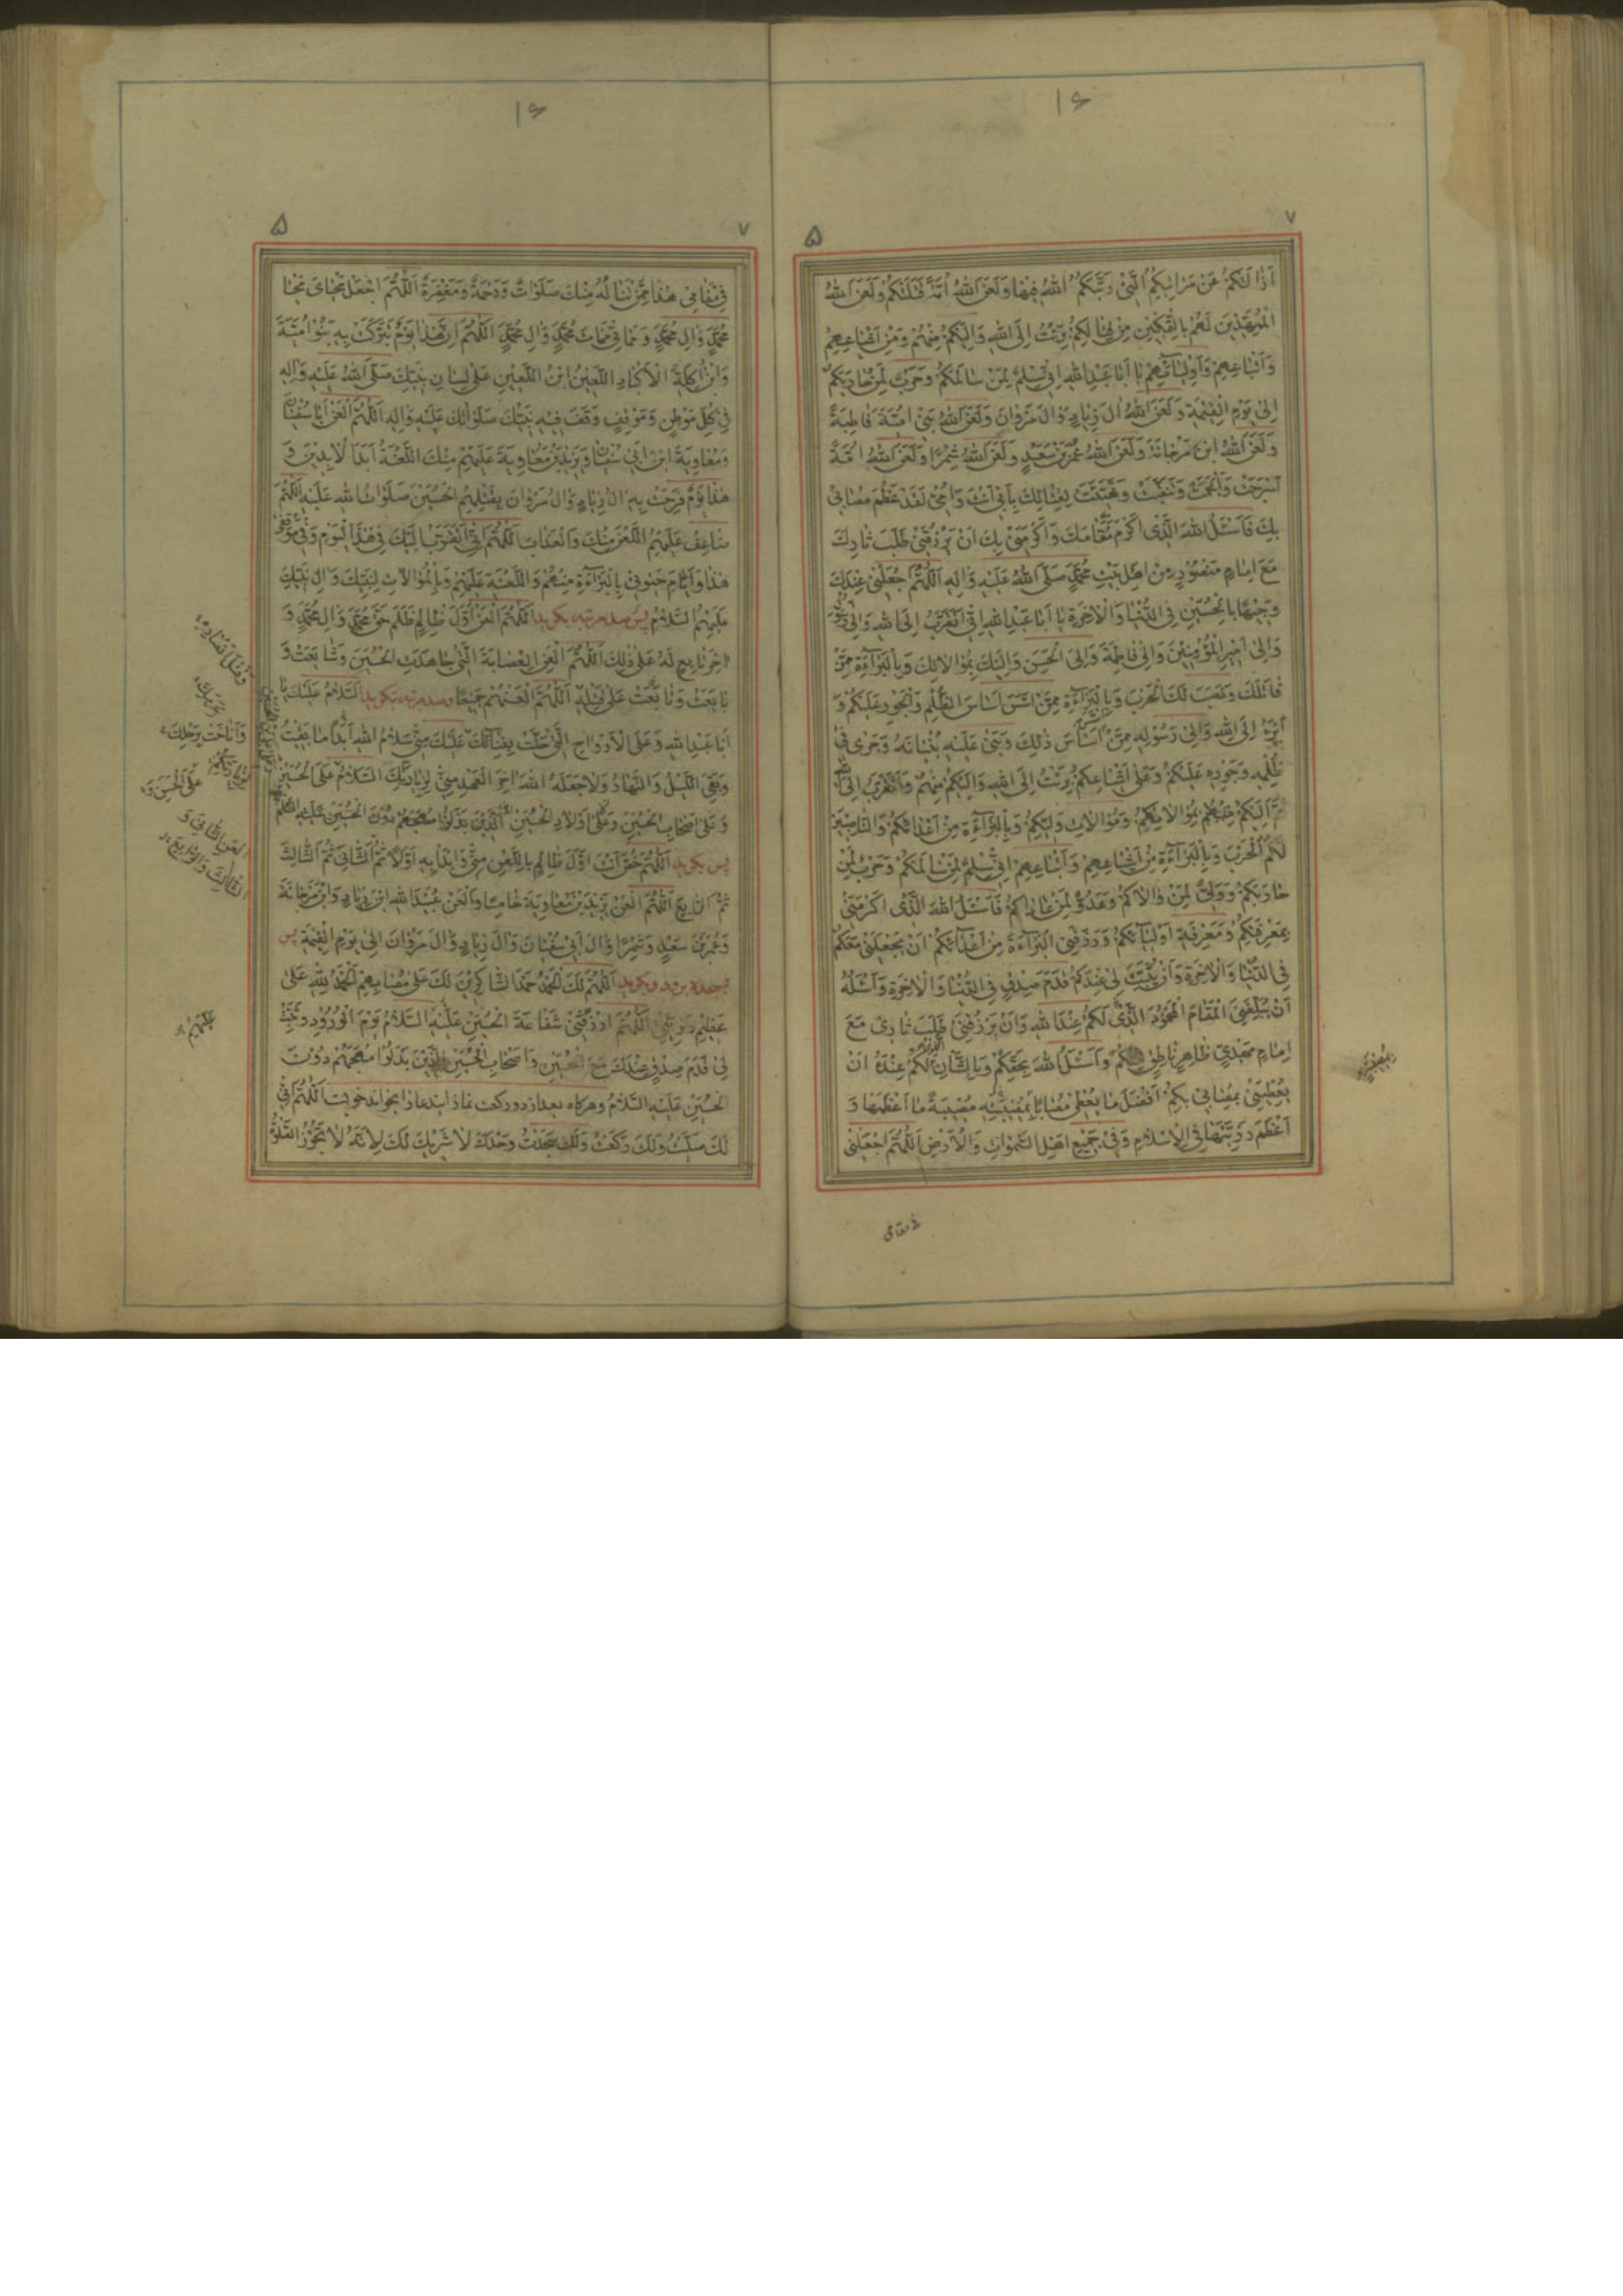 ١٤
٧
۵
اَزٰالَتْكُمْ عَنْ مَرٰاتِبِكُمُ الَّتِىْ رَتَّبَكُمُ اللّٰهُ فِيْهٰا وَلَعَنَ اللّٰهُ اُمَّةً قَتَلَتْكُمْ وَلَعَنَ اللّٰهُ
الْمُمَهِّدِيْنَ لَهُمْ بِالتَّمْكِيْنِ مِنْ قِتٰالِكُمْ بَرِئْتُ اِلَى اللّٰهِ وَاِلَيْكُمْ مِنْهُمْ وَمِنْ اَشْيٰاعِهِمْ
وَاَتْبٰاعِهِمْ وَاَوْلِيٰآئِهِمْ يٰا اَبٰا عَبْدِ اللّٰهِ اِنّى سِلْمٌ لِمَنْ سٰالَمَكُمْ وَحَرْبٌ لِمَنْ حٰارَبَكُمْ
اِلىٰ يَوْمِ الْقِيٰمَةِ وَلَعَنَ اللّٰهُ اٰلَ زِيٰادٍ وَاٰلَ مَرْوٰانَ وَلَعَنَ اللّٰهُ بَنِىْ اُمَيَّةَ قٰاطِبَةً
وَلَعَنَ اللّٰهُ ابْنَ مَرْجٰانَةَ وَلَعَنَ اللّٰهُ عُمَرَ بْنَ سَعْدٍ وَلَعَنَ اللّٰهُ شِمْرًا وَلَعَنَ اللّٰهُ اُمَّةً
اَسْرَجَتْ وَاَلْجَمَتْ وَتَنَقَّبَتْ وَتَهَيَّئَتْ لِقِتٰالِكَ بِاَبِىْ اَنْتَ وَاُمّىْ لَقَدْ عَظُمَ مُصٰابىْ
بِكَ فَاَسْئَلُ اللّٰهَ الَّذِى اَكْرَمَ مَقٰامَكَ وَاَكْرَمَنِىْ بِكَ اَنْ يَرْزُقَنِىْ طَلَبَ ثٰارِكَ
مَعَ اِمٰامٍ مَنْصُوْرٍ مِنْ اَهْلِ بَيْتِ مُحَمَّدٍ صَلَّى اللّٰهُ عَلَيْهِ وَاٰلِهِ اَللّٰهُمَّ اجْعَلْنِىْ عِنْدَكَ
وَجِيْهًا بِالْحُسَيْنِ فِى الدُّنْيٰا وَالْاٰخِرَةِ يٰا اَبٰا عَبْدِ اللّٰهِ اِنّى اَتَقَرَّبُ اِلَى اللّٰهِ وَاِلىٰ رَسُوْلِهِ
وَاِلىٰ اَمِيْرِ الْمُؤْمِنِيْنَ وَاِلىٰ فٰاطِمَةَ وَاِلَى الْحَسَنِ وَاِلَيْكَ بِمُوٰالٰاتِكَ وَبِالْبَرٰآءَةِ مِمَّنْ
قٰاتَلَكَ وَنَصَبَ لَكَ الْحَرْبَ وَبِالْبَرٰآءَةِ مِمَّنْ اَسَّسَ اَسٰاسَ الظُّلْمِ وَالْجَوْرِ عَلَيْكُمْ وَ
اَبْرَءُ اِلَى اللّٰهِ وَاِلىٰ رَسُوْلِهِ مِمَّنْ اَسَّسَ اَسٰاسَ ذٰلِكَ وَبَنىٰ عَلَيْهِ بُنْيٰانَهُ وَجَرىٰ فِىْ
ظُلْمِهِ وَجَوْرِهِ عَلَيْكُمْ وَعَلىٰ اَشْيٰاعِكُمْ بَرِئْتُ اِلَى اللّٰهِ وَاِلَيْكُمْ مِنْهُمْ وَاَتَقَرَّبُ اِلَى اللّٰهِ
ثُمَّ اِلَيْكُمْ بِمُوٰالٰاتِكُمْ وَمُوٰالٰاتِ وَلِيِّكُمْ وَبِالْبَرٰآءَةِ مِنْ اَعْدٰائِكُمْ وَالنّٰاصِبِيْنَ
لَكُمُ الْحَرْبَ وَبِالْبَرٰآءَةِ مِنْ اَشْيٰاعِهِمْ وَاَتْبٰاعِهِمْ اِنّىْ سِلْمٌ لِمَنْ سٰالَمَكُمْ وَحَرْبٌ لِمَنْ
حٰارَبَكُمْ وَوَلِىٌّ لِمَنْ وٰالٰاكُمْ وَعَدُوٌّ لِمَنْ عٰادٰاكُمْ فَاَسْئَلُ اللّٰهَ الَّذِى اَكْرَمَنِىْ
بِمَعْرِفَتِكُمْ وَمَعْرِفَةِ اَوْلِيٰآئِكُمْ وَرَزَقَنِى الْبَرٰآءَةَ مِنْ اَعْدٰائِكُمْ اَنْ يَجْعَلَنِىْ مَعَكُمْ
فِى الدُّنْيٰا وَالْاٰخِرَةِ وَاَنْ يُثَبِّتَ لِىْ عِنْدَكُمْ قَدَمَ صِدْقٍ فِى الدُّنْيٰا وَالْاٰخِرَةِ وَاَسْئَلُهُ
اَنْ يُبَلِّغَنِىَ الْمَقٰامَ الْمَحْمُوْدَ الَّذِىْ لَكُمْ عِنْدَ اللّٰهِ وَاَنْ يَرْزُقَنِىْ طَلَبَ ثٰارِىْ مَعَ
اِمٰامٍ مَهْدِىٍّ ظٰاهِرٍ نٰاطِقٍ مِنْكُمْ وَاَسْئَلُ اللّٰهَ بِحَقِّكُمْ وَبِالشَّاْنِ الَّذِىْ لَكُمْ عِنْدَهُ اَنْ
يُعْطِيَنِىْ بِمُصٰابِىْ بِكُمْ اَفْضَلَ مٰا يُعْطِىْ مُصٰابًا بِمُصِيْبَتِهِ مُصِيْبَةً مٰا اَعْظَمَهٰا وَ
اَعْظَمَ رَزِيَّتَهٰا فِى الْاِسْلٰامِ وَفِىْ جَمِيْعِ اَهْلِ السَّمٰوٰاتِ وَالْاَرْضِ اَللّٰهُمَّ اجْعَلْنِىْ
فى مقامى
١٤
٧
۵
فِىْ مَقٰامِىْ هٰذٰا مِمَّنْ تَنٰالُهُ مِنْكَ صَلَوٰاتٌ وَرَحْمَةٌ وَمَغْفِرَةٌ اَللّٰهُمَّ اجْعَلْ مَحْيٰاىَ مَحْيٰا
مُحَمَّدٍ وَاٰلِ مُحَمَّدٍ وَمَمٰاتِىْ مَمٰاتَ مُحَمَّدٍ وَاٰلِ مُحَمَّدٍ اَللّٰهُمَّ اِنَّ هٰذٰا يَوْمٌ تَبَرَّكَتْ بِهِ بَنُوْ اُمَيَّةَ
وَابْنُ اٰكِلَةِ الْاَكْبٰادِ اللَّعِيْنُ ابْنُ اللَّعِيْنِ عَلىٰ لِسٰانِ نَبِيِّكَ صَلَّى اللّٰهُ عَلَيْهِ وَاٰلِهِ
فِىْ كُلِّ مَوْطِنٍ وَمَوْقِفٍ وَقَفَ فِيْهِ نَبِيُّكَ صَلَوٰاتُكَ عَلَيْهِ وَاٰلِهِ اَللّٰهُمَّ الْعَنْ اَبٰا سُفْيٰانَ
وَمُعٰاوِيَةَ ابْنَ اَبِىْ سُفْيٰانَ وَيَزِيْدَ بْنَ مُعٰاوِيَةَ عَلَيْهِمْ مِنْكَ اللَّعْنَةُ اَبَدَ الْاٰبِدِيْنَ وَ
هٰذٰا يَوْمٌ فَرِحَتْ بِهِ اٰلُ زِيٰادٍ وَاٰلُ مَرْوٰانَ بِقَتْلِهِمُ الْحُسَيْنَ صَلَوٰاتُ اللّٰهِ عَلَيْهِ اَللّٰهُمَّ
ضٰاعِفْ عَلَيْهِمُ اللَّعْنَ مِنْكَ وَالْعَذٰابَ اَللّٰهُمَّ اِنّىْ اَتَقَرَّبُ اِلَيْكَ فِىْ هٰذَا الْيَوْمِ وَفِىْ مَوْقِفِىْ
هٰذٰا وَاَيّٰامِ حَيٰوتِىْ بِالْبَرٰآءَةِ مِنْهُمْ وَاللَّعْنَةِ عَلَيْهِمْ وَبِالْمُوٰالٰاتِ لِنَبِيِّكَ وَاٰلِ نَبِيِّكَ
عَلَيْهِمُ السَّلٰامُ پس صد مرتبه بگويد اَللّٰهُمَّ الْعَنْ اَوَّلَ ظٰالِمٍ ظَلَمَ حَقَّ مُحَمَّدٍ وَاٰلِ مُحَمَّدٍ وَ
اٰخِرَ تٰابِعٍ لَهُ عَلىٰ ذٰلِكَ اَللّٰهُمَّ الْعَنِ الْعِصٰابَةَ الَّتِىْ جٰاهَدَتِ الْحُسَيْنَ وَشٰايَعَتْ وَ
بٰايَعَتْ وَتٰابَعَتْ عَلىٰ قَتْلِهِ اَللّٰهُمَّ الْعَنْهُمْ جَمِيْعًا وصد مرتبه بگويد اَلسَّلٰامُ عَلَيْكَ يٰا
اَبٰا عَبْدِ اللّٰهِ وَعَلَى الْاَرْوٰاحِ الَّتِىْ حَلَّتْ بِفِنٰائِكَ عَلَيْكَ مِنّىْ سَلٰامُ اللّٰهِ اَبَدًا مٰا بَقِيْتُ
وَبَقِىَ اللَّيْلُ وَالنَّهٰارُ وَلٰا جَعَلَهُ اللّٰهُ اٰخِرَ الْعَهْدِ مِنّىْ لِزِيٰارَتِكَ اَلسَّلٰامُ عَلَى الْحُسَيْنِ
وَعَلىٰ اَصْحٰابِ الْحُسَيْنِ وَعَلىٰ اَوْلٰادِ الْحُسَيْنِ الَّذِيْنَ بَذَلُوْا مُهَجَهُمْ دُوْنَ الْحُسَيْنِ عَلَيْهِ السَّلٰامُ
پس بگويد اَللّٰهُمَّ خُصَّ اَنْتَ اَوَّلَ ظٰالِمٍ بِاللَّعْنِ مِنّىْ وَابْدَأْ بِهِ اَوَّلًا ثُمَّ الثّٰانِىَ ثُمَّ الثّٰالِثَ
ثُمَّ الرّٰابِعَ اَللّٰهُمَّ الْعَنْ يَزِيْدَ بْنَ مُعٰاوِيَةَ خٰامِسًا وَالْعَنْ عُبَيْدَ اللّٰهِ ابْنَ زِيٰادٍ وَابْنَ مَرْجٰانَةَ
وَعُمَرَ بْنَ سَعْدٍ وَشِمْرًا وَاٰلَ اَبِىْ سُفْيٰانَ وَاٰلَ زِيٰادٍ وَاٰلَ مَرْوٰانَ اِلىٰ يَوْمِ الْقِيٰمَةِ پس
بسجده برود وبگويد اَللّٰهُمَّ لَكَ الْحَمْدُ حَمْدَ الشّٰاكِرِيْنَ لَكَ عَلىٰ مُصٰابِهِمْ اَلْحَمْدُ لِلّٰهِ عَلىٰ
عَظِيْمِ رَزِيَّتِىْ اَللّٰهُمَّ ارْزُقْنِىْ شَفٰاعَةَ الْحُسَيْنِ عَلَيْهِ السَّلٰامُ يَوْمَ الْوُرُوْدِ وَثَبِّتْ
لِىْ قَدَمَ صِدْقٍ عِنْدَكَ مَعَ الْحُسَيْنِ وَاَصْحٰابِ الْحُسَيْنِ الَّذِيْنَ بَذَلُوْا مُهَجَهُمْ دُوْنَ
الْحُسَيْنِ عَلَيْهِ السَّلٰامُ وهرگاه بعد از دو ركعت نماز ايندعا را بخواند خوبست اَللّٰهُمَّ اِنّىْ
لَكَ صَلَّيْتُ وَلَكَ رَكَعْتُ وَلَكَ سَجَدْتُ وَحْدَكَ لٰا شَرِيْكَ لَكَ لِاَنَّهُ لٰا تَجُوْزُ الصَّلٰوةُ
وَاَنٰاخَتْ بِرَحْلِكَ
عَلَى الْحُسَيْنِ وَ
الْعَنِ الثّٰانِىَ وَ
الثّٰالِثَ وَالرّٰابِعَ
عَلَيْهِمْ